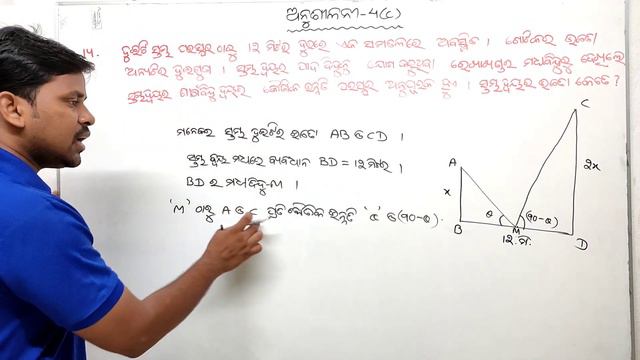 ଅନୁଶୀଳନୀ-4(c)
14. ଦୁଇଟି ସ୍ତମ୍ଭ ପରସ୍ପର ଠାରୁ ୧୨ ମିଟର ଦୂରରେ ଏକ ସମତଳରେ ଅବସ୍ଥିତ । ଗୋଟିକର ଉଚ୍ଚତା
ଅନ୍ୟଟିର ଦୁଇଗୁଣ । ସ୍ତମ୍ଭ ଦ୍ୱୟର ପାଦ ବିନ୍ଦୁକୁ ଯୋଗ କରୁଥିବା ରେଖାଖଣ୍ଡର ମଧ୍ୟବିନ୍ଦୁରୁ ଦେଖିଲେ
ସ୍ତମ୍ଭଦ୍ୱୟର ଶୀର୍ଷବିନ୍ଦୁ ଦ୍ୱୟର କୌଣିକ ଉନ୍ନତି ପରସ୍ପର ଅନୁପୂରକ ହୁଏ । ସ୍ତମ୍ଭ ଦ୍ୱୟର ଉଚ୍ଚତା କେତେ ?
ମନେକର ସ୍ତମ୍ଭ ଦୁଇଟିର ଉଚ୍ଚତା AB ଓ CD ।
ସ୍ତମ୍ଭ ଦ୍ୱୟ ମଧ୍ୟରେ ବ୍ୟବଧାନ BD = ୧୨ ମିଟର ।
BD ର ମଧ୍ୟବିନ୍ଦୁ M ।
'M' ଠାରୁ A ଓ C ପ୍ରତି କୌଣିକ ଉନ୍ନତି 'θ' ଓ (90-θ) .
C
A
x
2x
θ
(90-θ)
B
M
D
୧୨ ମି.